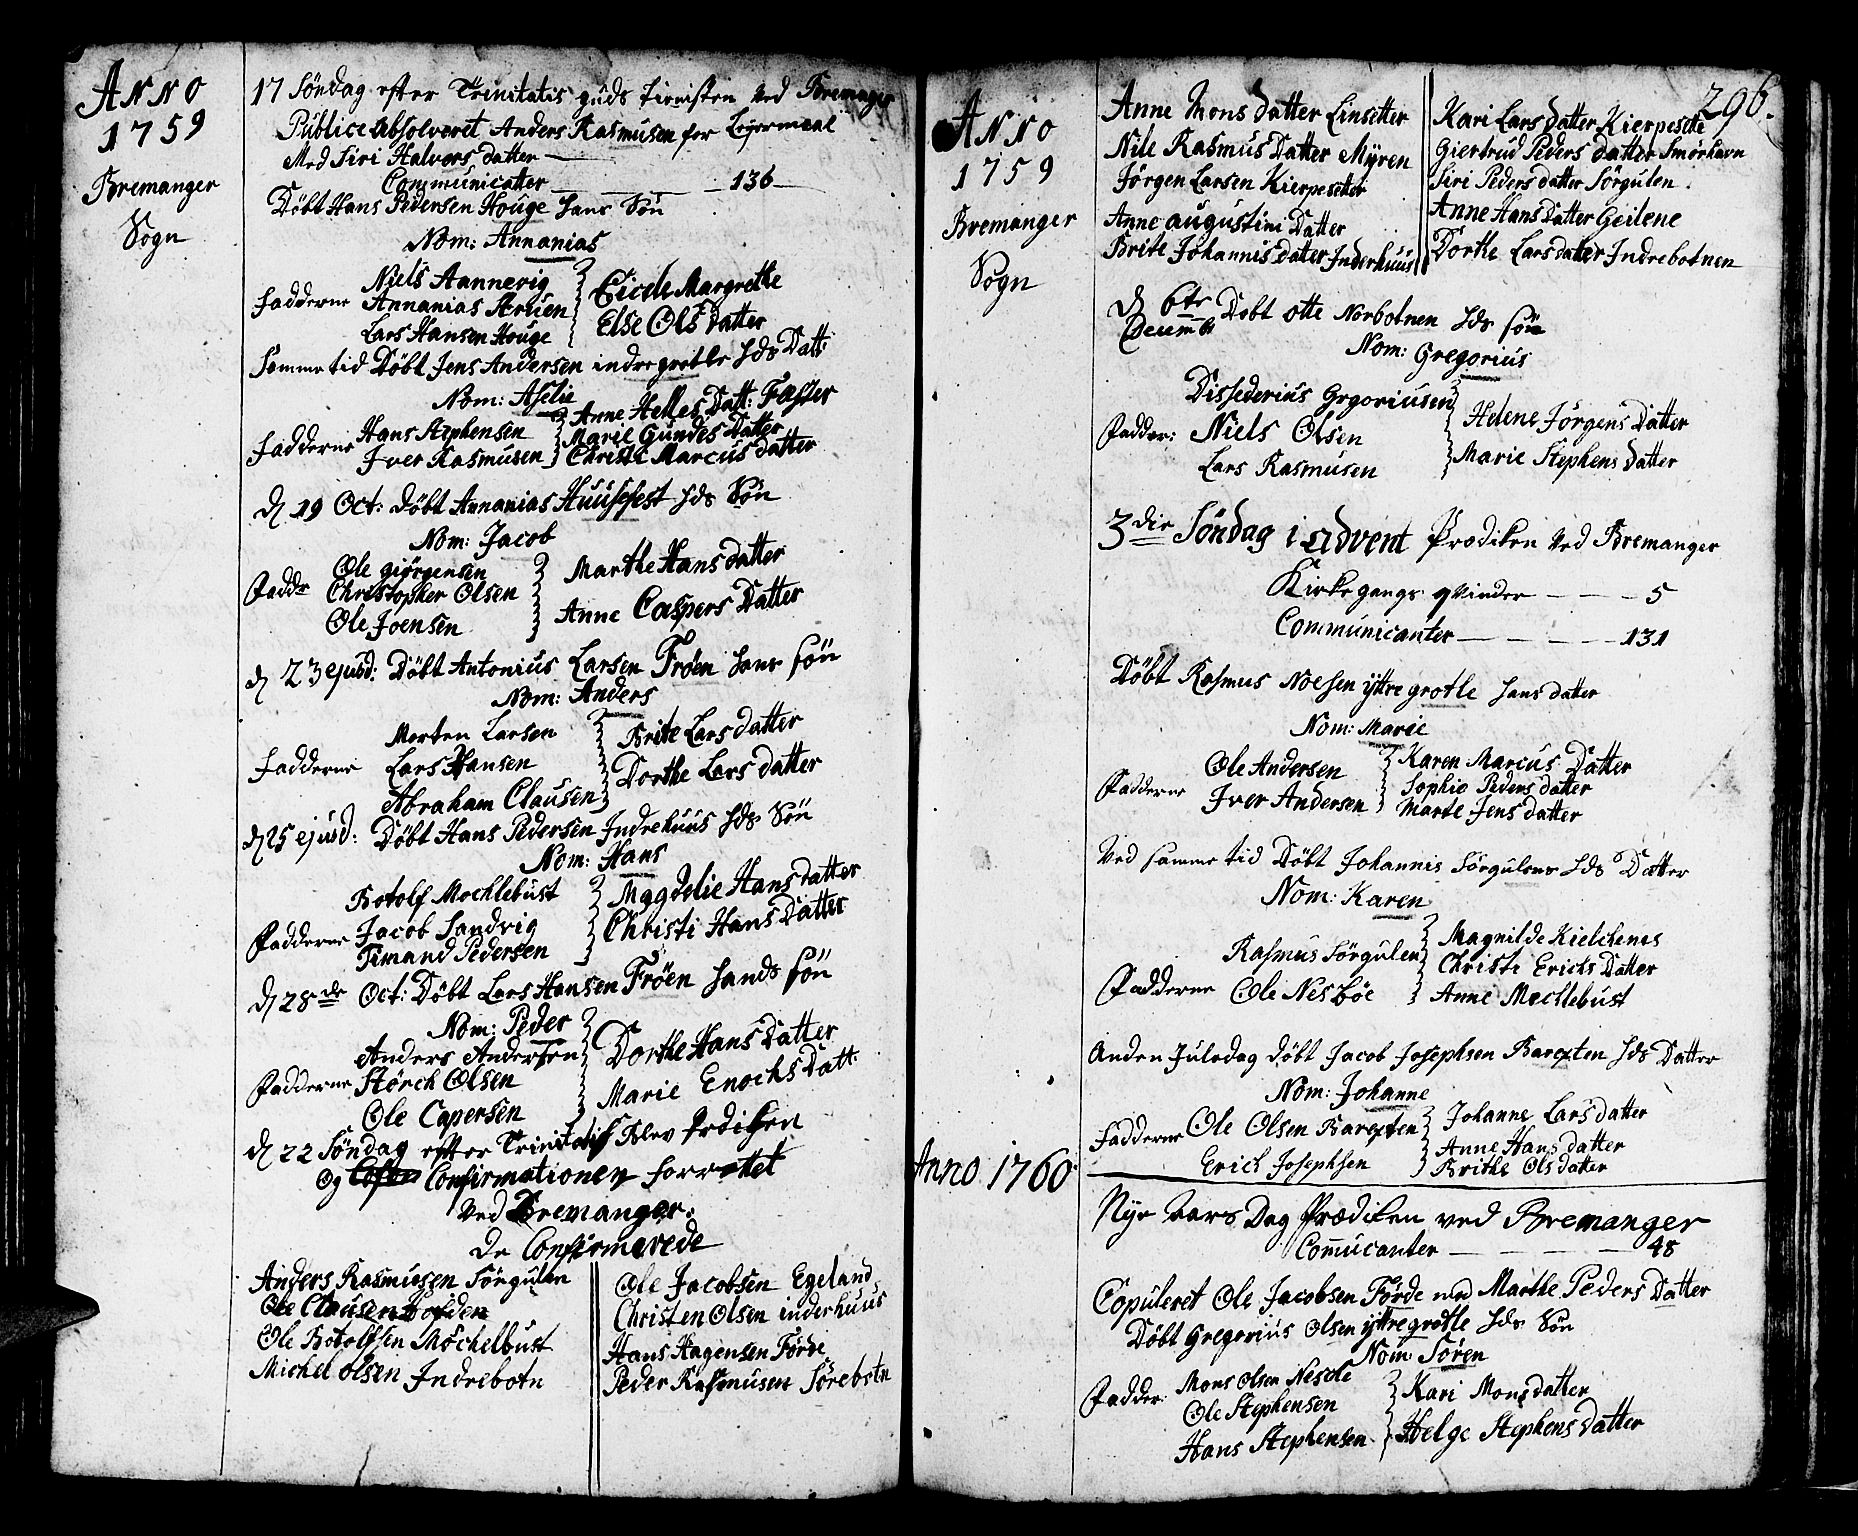 Anno
1759
Bremanger
Sogn
17 Söndag efter Trinitatis guds tienisten ved Bremanger
Publice absolveret Anders Rasmusen for Leyermaal
Med Siri Halvors datter
Communicatter 136
Döbt Hans Pedersen Houge hans Sön
Nom: Annanias
Niels Aannevig
Fadderne Annanias Aruen
Lars Hansen Houge
Eicele Margrethe
Else Ols datter
Samme tid Döbt Jens Andersen indregrotle hds Datt
Nom: Aselie
Hans Stephensen
Fadderne Iver Rasmusen
Anne Helles Datt: Faster
Marie Gundes Datter
Christi Marcus datter
d 19 Oct: döbt Annanias Huusefest hds Sön
Nom: Jacob
Ole giörgensen
Fadd Christopher Olsen
Ole Joensen
Marthe Hans datter
Anne Caspers Datter
d 23 ejusd: Döbt Antonius Larsen Fröen hans sön
Nom: Anders
Morten Larsen
Fadderne Lars Hansen
Abraham Clausen
Brite Lars datter
Dorthe Lars datter
d 25 ejusd: Döbt Hans Pedersen Indrehuus hds Sön
Nom: Hans
Botolf Mochlebust
Fadderne Jacob Sandvig
Timand Pedersen
Magdelie Hans datter
Christi Hans Datter
d 28de Oct: Döbt Lars Hansen Fröen hands sön
Nom: Peder
Anders Andersen
Fadderne Störch Olsen
Ole Capersen
Dorthe Hans Datter
Marie Enochs Datt:
d 22 Söndag efter Trinitatis blev Prediken
Og Confirmationen forrettet
ved Bremanger.
De Confirmerede
Anders Rasmusen Sörgulen
Ole Clausen
Ole Botolfsen Möchelbust
Michel olsen Indrebotn
Ole Jacobsen Egeland
Christen Olsen inderhuus
Hans Hagensen Förde
Peder Rasmusen Sörebotn
296.
Anno
1759
Bremanger
Sogn
Anne Mons datter Linsetter
Nile Rasmus Datter Myren
Jörgen Larsen Kierpesetter
Anne augustini Datter
Brite Johannis datter Inderhuus
Kari Lars datter Kierpesette
Giertrud Peders datter Smörhavn
Siri Peders datter Sörgulen
Anne Hans Datter Geilene
Dorthe Lars datter Indrebotnen
d 6te Decemb Döbt otte Norbotnen hds sön
Nom: Gregorius
Dissederius Grgoriusen
Fadder: Niels Olsen
Lars Rasmusen
Helene Jörgens Datter
Marie Stephens datter
3die Söndag i advent Prediken ved Bremanger
Kirkegangs qvinder 5
Communicanter 131
Döbt Rasmus Noesen yttregrotle hans datter
Nom: Marie
Ole Andersen
Fadderne Iver Andersen
Karen Marcus Datter
Sophie Peders datter
Marte Jens datter
Ved samme tid Döbt Johannis Sörgulens hds Datter
Nom: Karen
Rasmus Sörgulen
Fadderne Ole Nesböe
Magnilde Kielckenes
Christi Erichs Datter
Anne Mochlebust
Anden Juledag döbt Jacob Josephsen Barexten hds Datter
Nom: Johanne
Fadderne Ole Olsen Barexten
Erich Josephsen
Johanne Lars datter
Anne Hans datter
Brithe Ols datter
Anno 1760
Nye aars Dag Prædiken ved Bremanger
Comucanter 48
Copuleret Ole Jacobsen Förde med Marthe Peders Datter
Döbt Gregorius Olsen yttregrotle hds Sön
Nom: Sören
Fadder: Mons Olsen Nesde
Ole Stephensen
Hans Stephensen
Kari Mons datter
Helge Stephens Datter